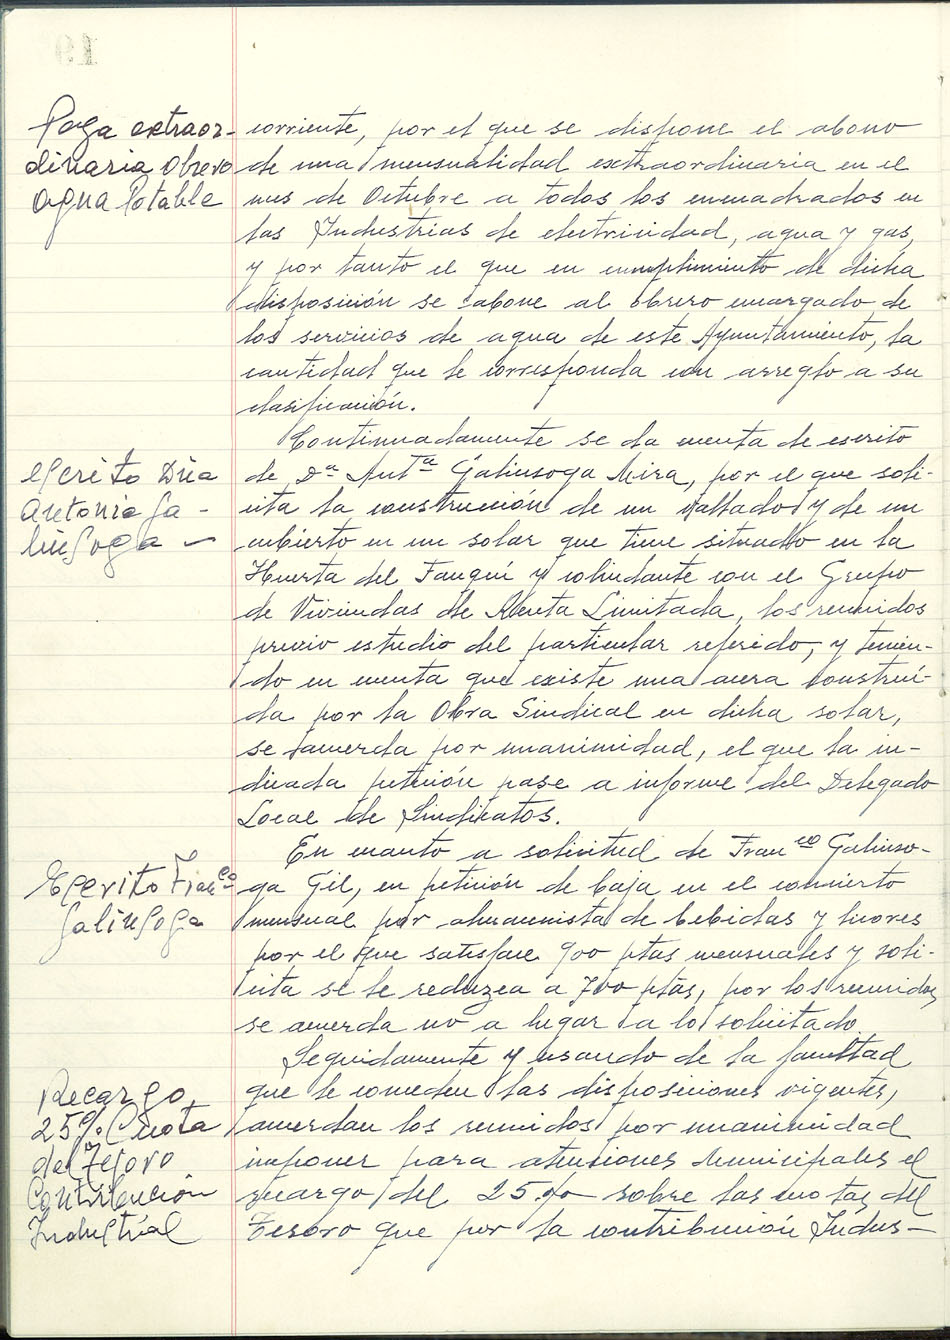 Paga extraor-
dinaria obrero
agua Potable
corriente, por el que se dispone el abono
de una mensualidad extraordinaria en el
mes de Octubre a todos los encuadrados en
las Industrias de electricidad, agua y gas,
y por tanto el que en cumplimiento de dicha
disposición se abone al obrero encargado de
los servicios de agua de este Ayuntamiento, la
cantidad que le corresponda con arreglo a su
clasificación.
Escrito Dña
Antonia Ga-
linsoga
Continuadamente se da cuenta de escrito
de Dª Antª Galinsoga Mira, por el que soli-
cita la construcción de un vallado y de un
cubierto en un solar que tiene situado en la
Huerta del Fanquí y colindante con el Grupo
de Viviendas de Renta Limitada, los reunidos
previo estudio del particular referido, y tenien-
do en cuenta que existe una acera construi-
da por la Obra Sindical en dicha solar,
se acuerda por unanimidad, el que la in-
dicada petición pase a informe del Delegado
Local de Sindicatos.
Escrito Franco
Galinsoga
En cuanto a solicitud de Franco Galinso-
ga Gil, en petición de baja en el concierto
mensual por almacenista de bebidas y licores
por el que satisface 900 ptas mensuales y soli-
cita se le reduzca a 700 ptas, por los reunidos,
se acuerda no a lugar a lo solicitado
Recargo
25% Cuota
del Tesoro
Contribución
Industrial
Seguidamente y usando de la facultad
que le conceden las disposiciones vigentes,
acuerdan los reunidos por unanimidad
imponer para atenciones Municipales el
recargo del 25% sobre las cuotas del
Tesoro que por la contribución Indus-